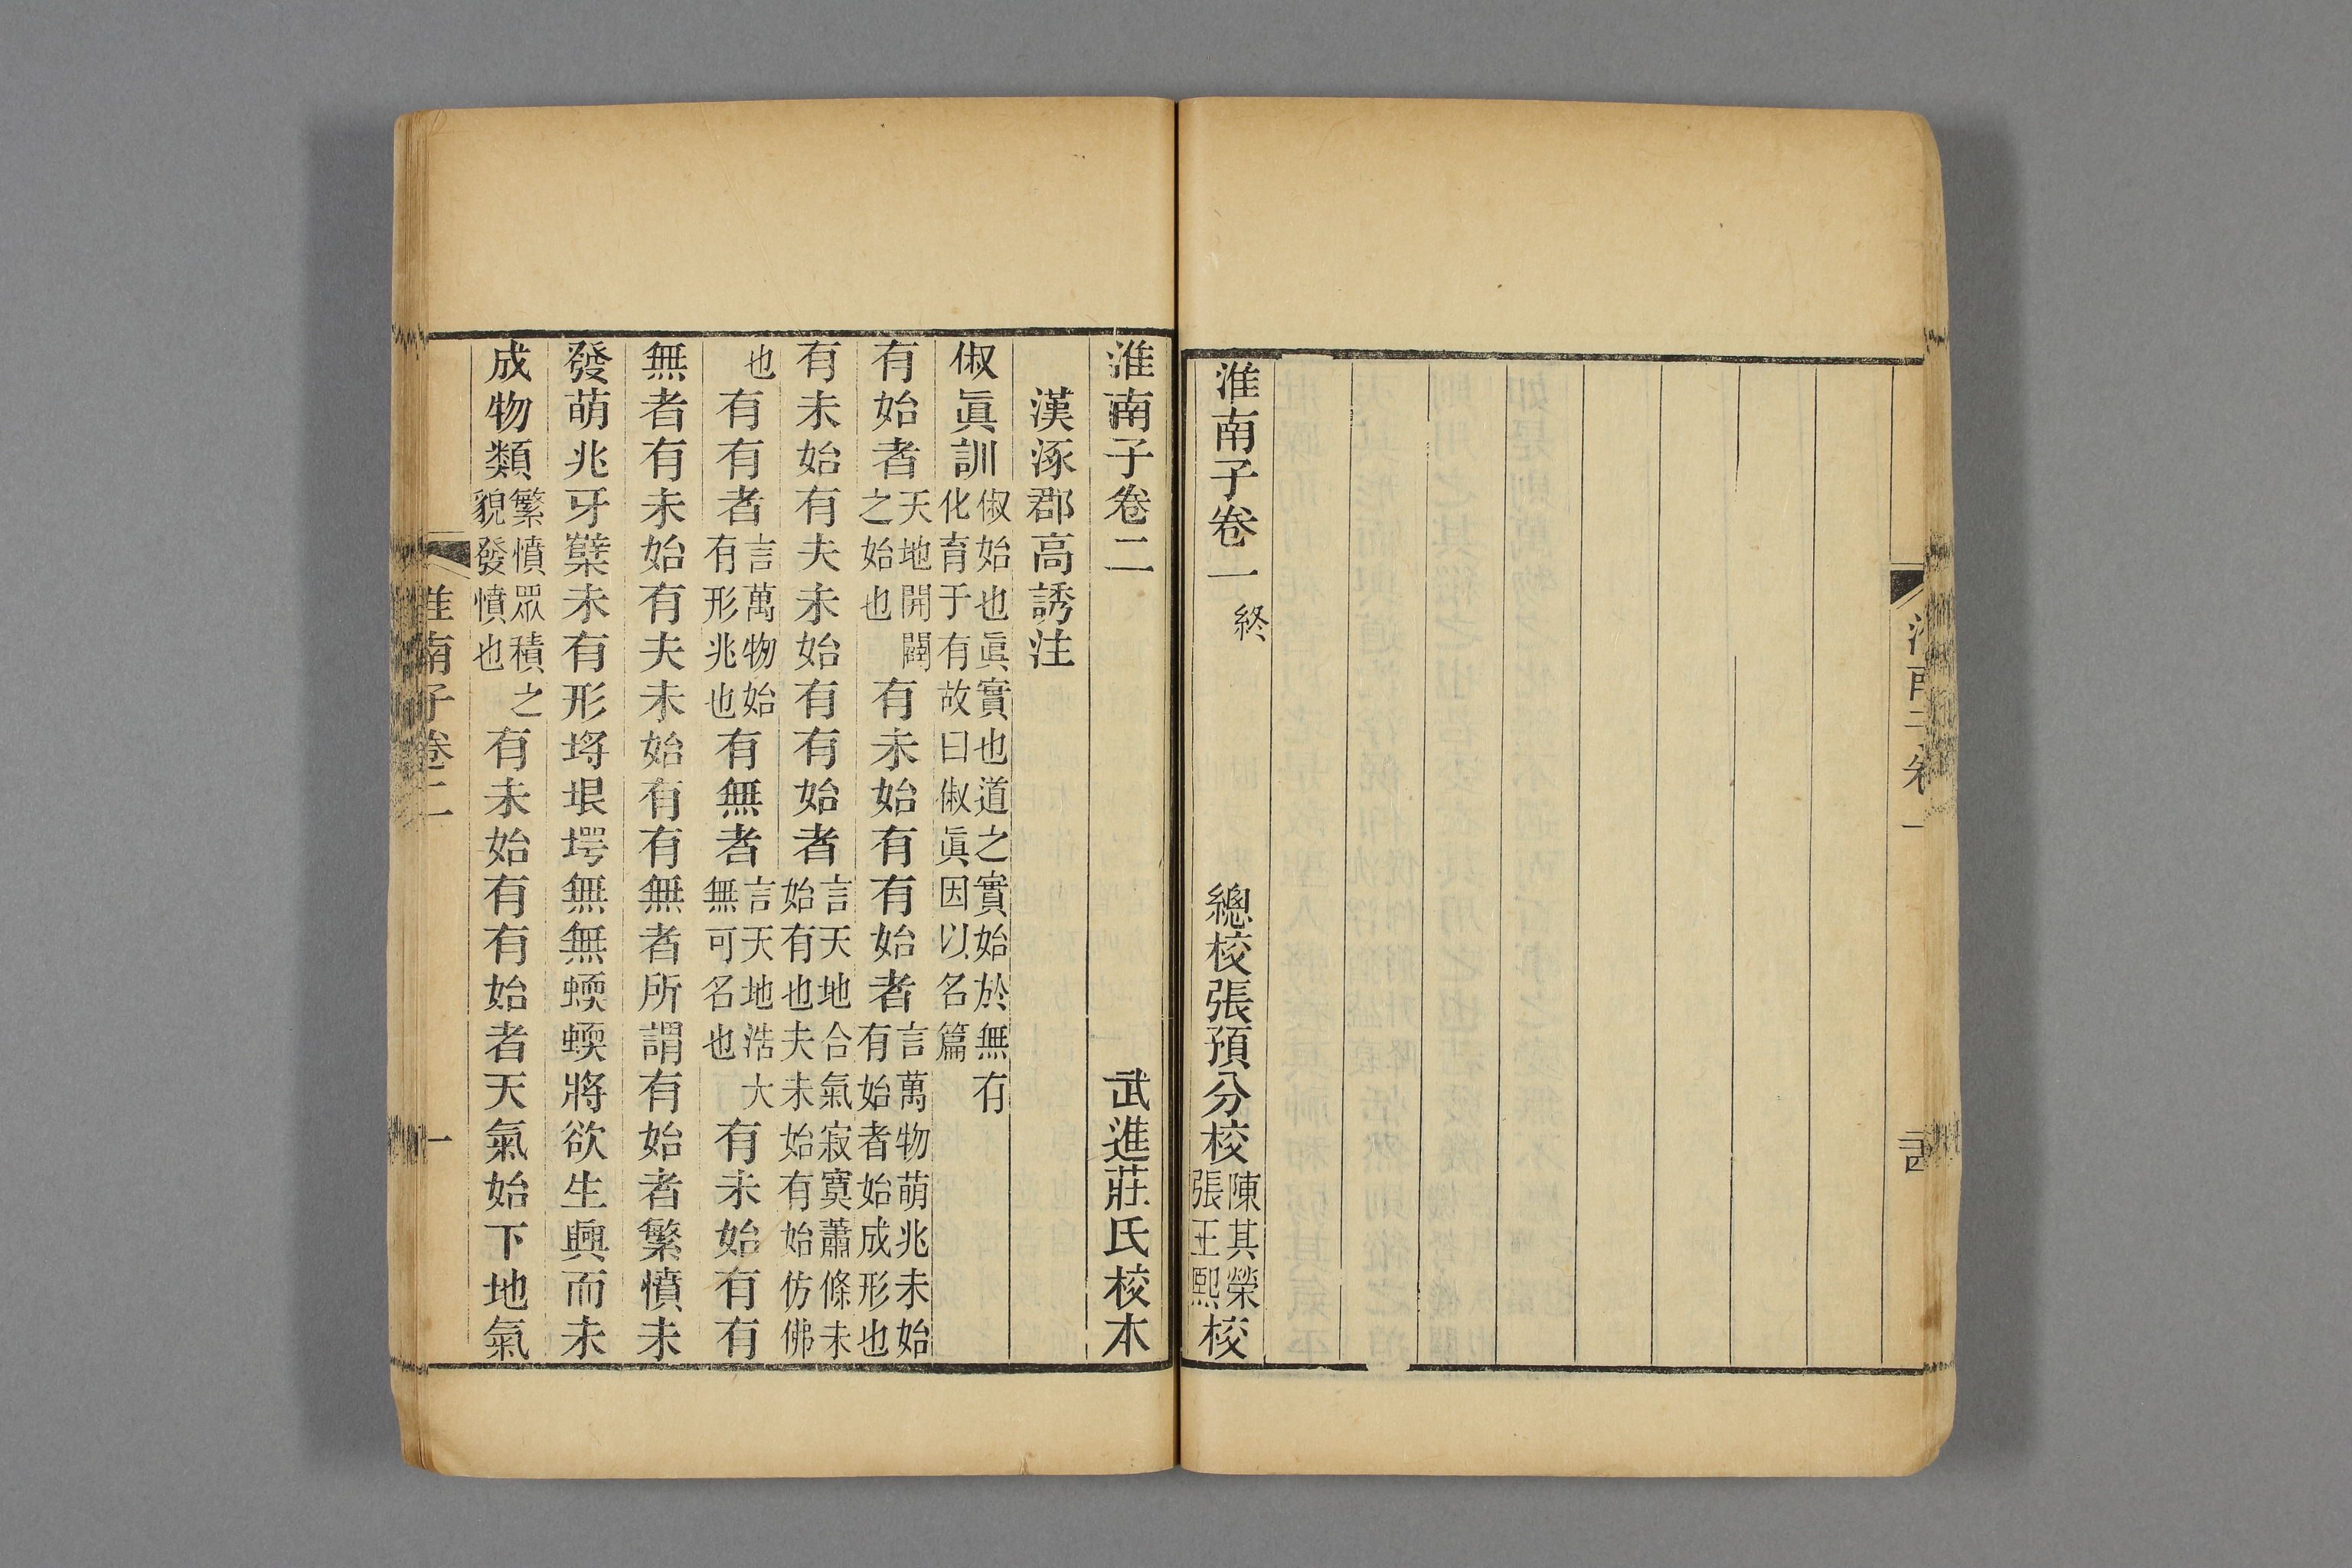 淮南子卷一
廿四
淮南子卷一終 總校張預分校陳其榮張王熙校
淮南子卷二 武進莊氏校本
漢涿郡高誘注
俶眞訓俶始也眞實也道之實始於無有化育于有故曰俶眞因以名篇
有始者天地開闢之始也有未始有有始者言萬物萌兆未始有始者始成形也
有未始有夫未始有有始者言天地合氣寂寞蕭條未始有也夫未始有始仿佛
也有有者言萬物始有形兆也有無者言天地浩大無可名也有未始有有
無者有未始有夫未始有有無者所謂有始者繁憤未
發萌兆牙櫱未有形埒垠堮無無蝡蝡將欲生興而未
成物類繁憤眾積之貌發憤也有未始有有始者天氣始下地氣
淮南子卷二
一